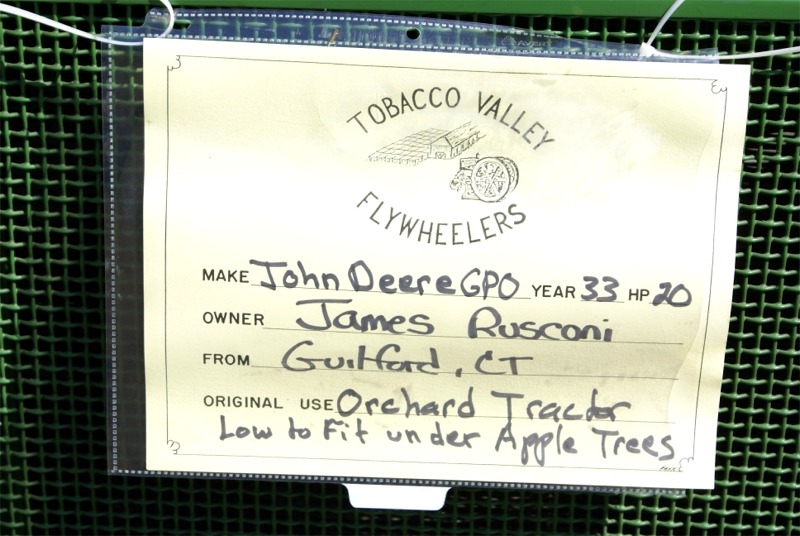 TOBACCO VALLEY
FLYWHEELERS
MAKE John Deere GPO YEAR 33 HP 20
OWNER James Rusconi
FROM Guilford, CT
ORIGINAL USE Orchard Tractor
Low to Fit under Apple Trees